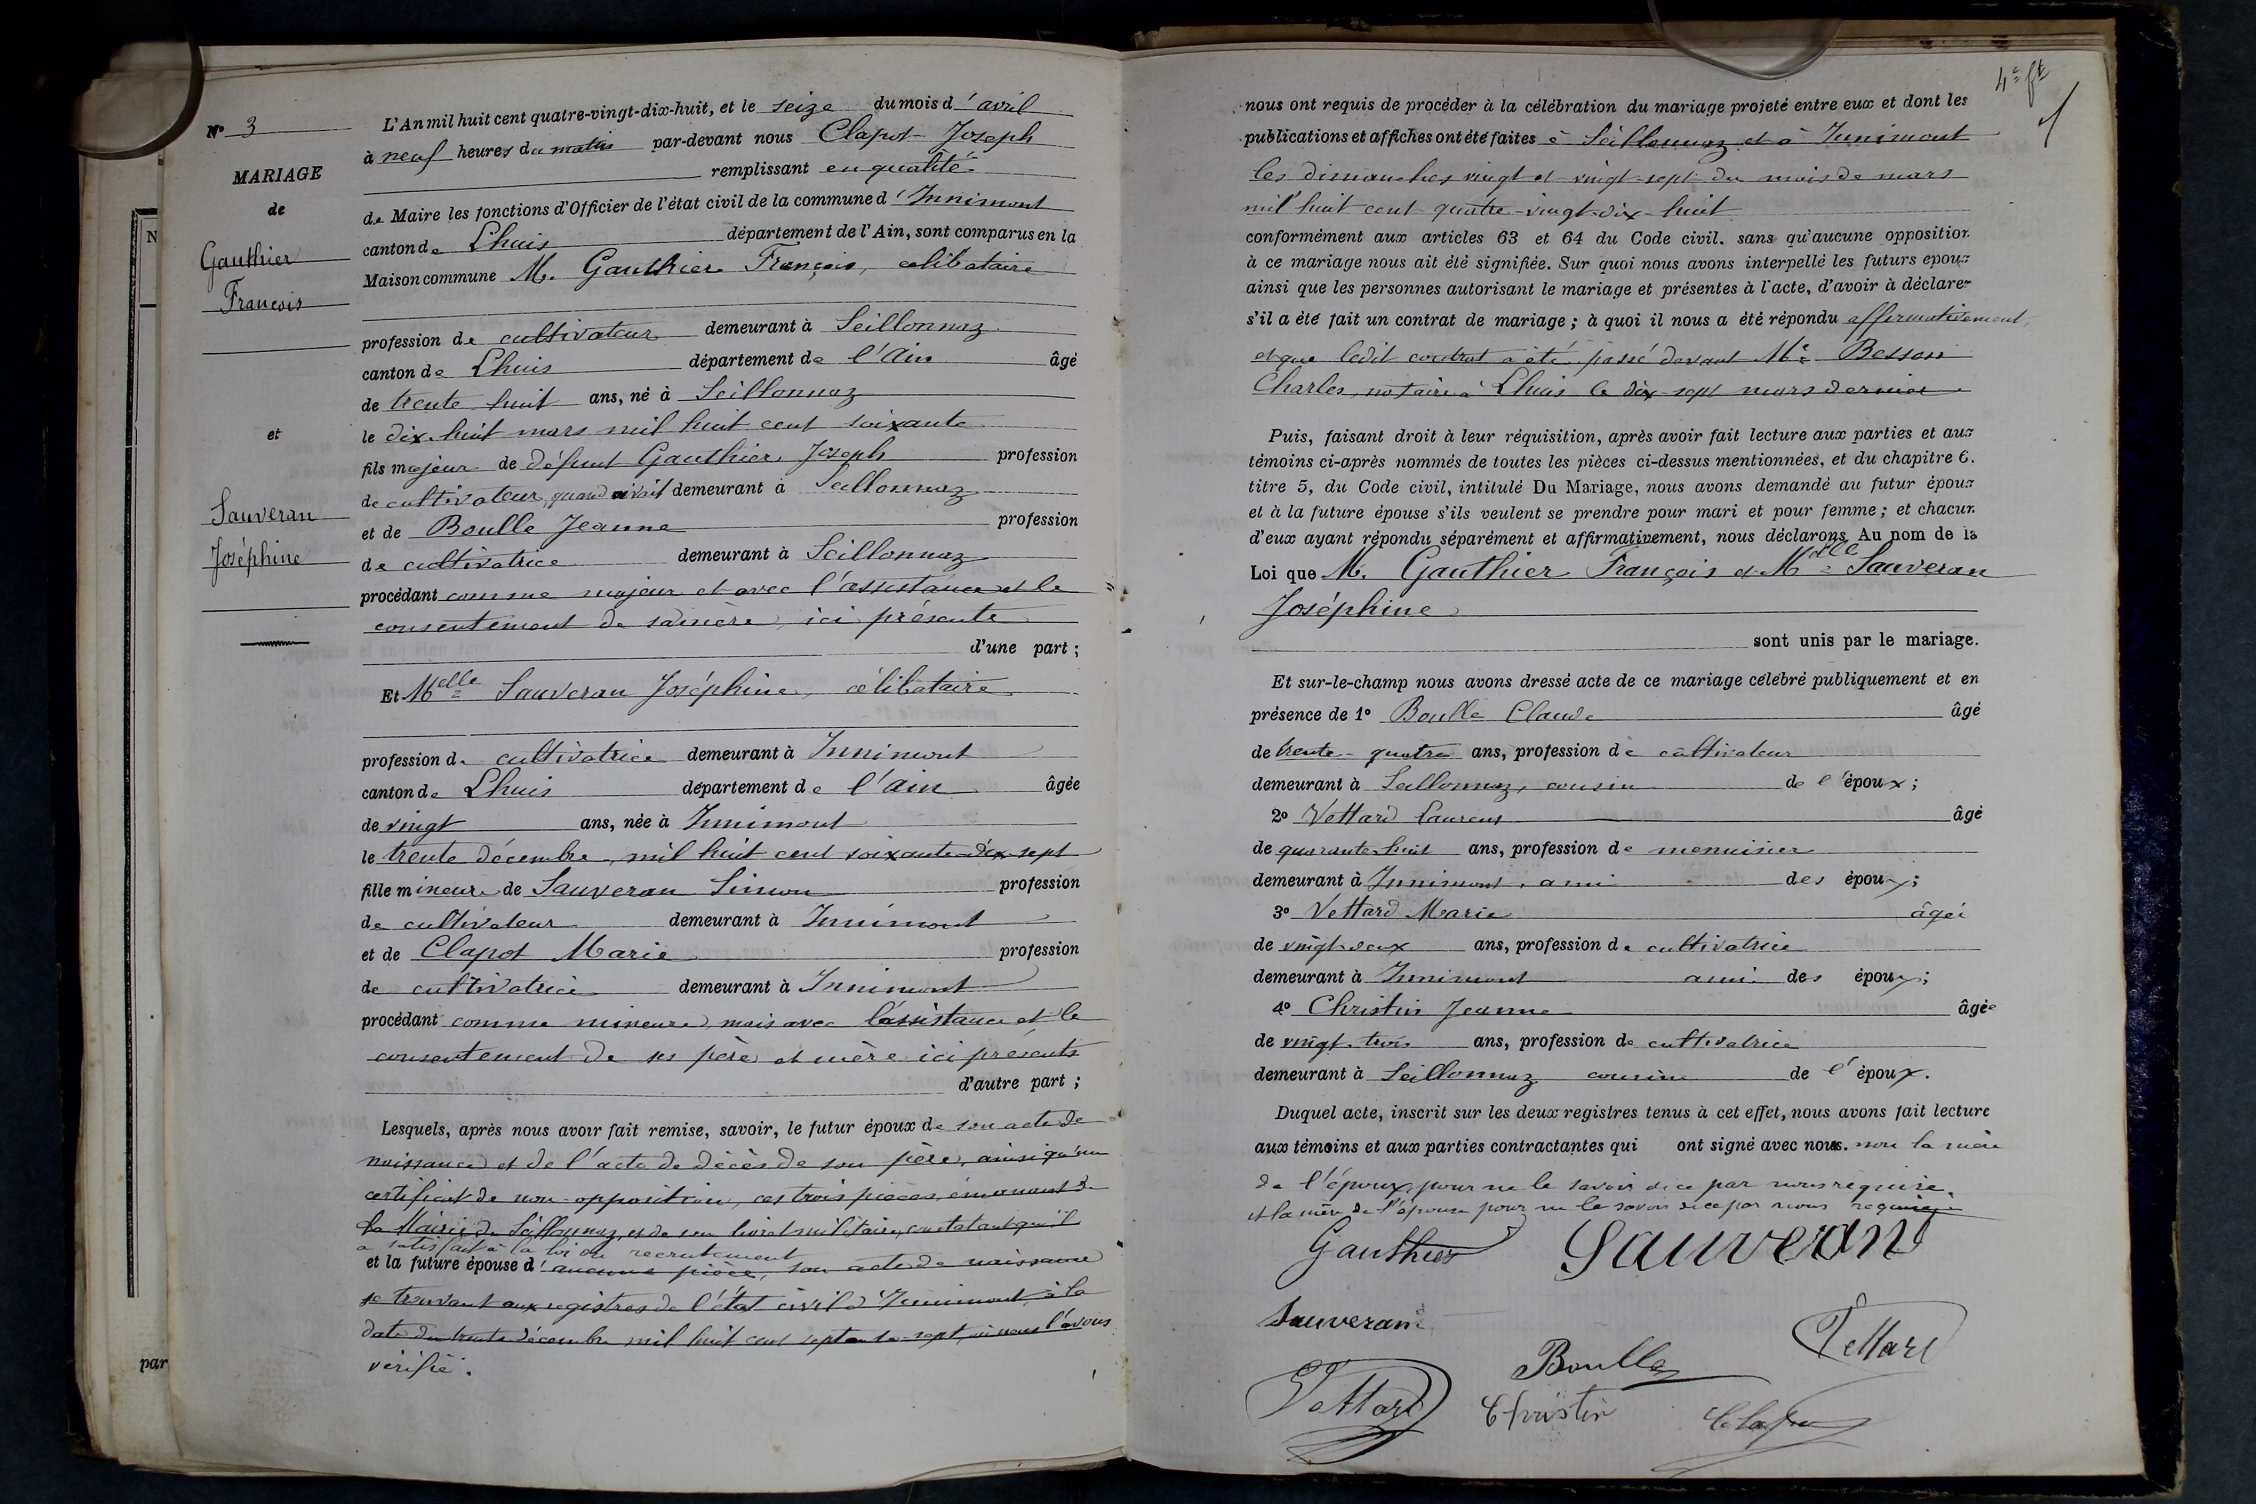 N° 3
MARIAGE
de
Gauthier
François
et
Sauveran
Joséphine
L'An mil huit cent quatre-vingt-dix-huit, et le seize du mois d'avril
à neuf heures du matin par-devant nous Clapot Joseph
remplissant en qualité
de Maire les fonctions d'Officier de l'état civil de la commune d'Innimont
canton de Lhuis département de l'Ain, sont comparus en la
Maison commune M. Gauthier François, célibataire
profession de cultivateur demeurant à Seillonnaz
canton de Lhuis département de l'Ain âgé
de trente huit ans, né à Seillonnaz
le dix-huit mars mil huit cent soixante
fils majeur de défunt Gauthier Joseph profession
de cultivateur, quand vivait demeurant à Seillonnaz
et de Boulle Jeanne profession
de cultivatrice demeurant à Seillonnaz
procédant comme majeur et avec l'assistance et le
consentement de sa mère, ici présente
d'une part ;
Et Melle Sauveran Joséphine, célibataire
profession de cultivatrice demeurant à Innimont
canton de Lhuis département de l'Ain âgée
de vingt ans, née à Innimont
le trente décembre, mil huit cent soixante-dix-sept
fille mineure de Sauveran Simon profession
de cultivateur demeurant à Innimont
et de Clapot Marie profession
de cultivatrice demeurant à Innimont
procédant comme mineure, mais avec l'assistance et le
consentement de ses père et mère ici présents
d'autre part ;
Lesquels, après nous avoir fait remise, savoir, le futur époux de son acte de
naissance et de l'acte de décès de son père, ainsi qu'un
certificat de non-opposition, ces trois pièces émanant de
la Mairie de Seillonnaz, et de son livret militaire, constatant qu'il
a satisfait à la loi du recrutement
et la future épouse d'aucune pièce, son acte de naissance
se trouvant aux registres de l'état civil d'Innimont, à la
date du trente décembre mil huit cent septante-sept, où nous l'avons
vérifié.
4e ft
nous ont requis de procéder à la célébration du mariage projeté entre eux et dont les
publications et affiches ont été faites à Seillonnaz et à Innimont
les dimanches vingt et vingt-sept du mois de mars
mil huit cent quatre-vingt-dix-huit
conformément aux articles 63 et 64 du Code civil. sans qu'aucune opposition
à ce mariage nous ait été signifiée. Sur quoi nous avons interpellé les futurs époux
ainsi que les personnes autorisant le mariage et présentes à l'acte, d'avoir à déclarer
s'il a été fait un contrat de mariage ; à quoi il nous a été répondu affirmativement,
et que ledit contrat a été passé devant Me Besson
Charles, notaire à Lhuis le dix-sept mars dernier
Puis, faisant droit à leur réquisition, après avoir fait lecture aux parties et aux
témoins ci-après nommés de toutes les pièces ci-dessus mentionnées, et du chapitre 6.
titre 5, du Code civil, intitulé Du Mariage, nous avons demandé au futur époux
et à la future épouse s'ils veulent se prendre pour mari et pour femme ; et chacun
d'eux ayant répondu séparément et affirmativement, nous déclarons Au nom de la
Loi que M. Gauthier François et Melle Sauveran
Joséphine
sont unis par le mariage.
Et sur-le-champ nous avons dressé acte de ce mariage célébré publiquement et en
présence de 1° Boulle Claude âgé
de trente-quatre ans, profession de cultivateur
demeurant à Seillonnaz, cousin de l'époux ;
2° Vettard Laurent âgé
de quarante-huit ans, profession de menuisier
demeurant à Innimont, ami des époux ;
3° Vettard Marie âgée
de vingt-deux ans, profession de cultivatrice
demeurant à Innimont amie des époux ;
4° Christin Jeanne âgée
de vingt-trois ans, profession de cultivatrice
demeurant à Seillonnaz cousine de l'époux.
Duquel acte, inscrit sur les deux registres tenus à cet effet, nous avons fait lecture
aux témoins et aux parties contractantes qui ont signé avec nous. non la mère
de l'époux, pour ne le savoir de ce par nous requise.
et la mère de l'épouse pour ne le savoir de ce par nous requise
Gauthier Sauveran
Sauveran
Boulle Vettard
Vettard Christin Clapot
par